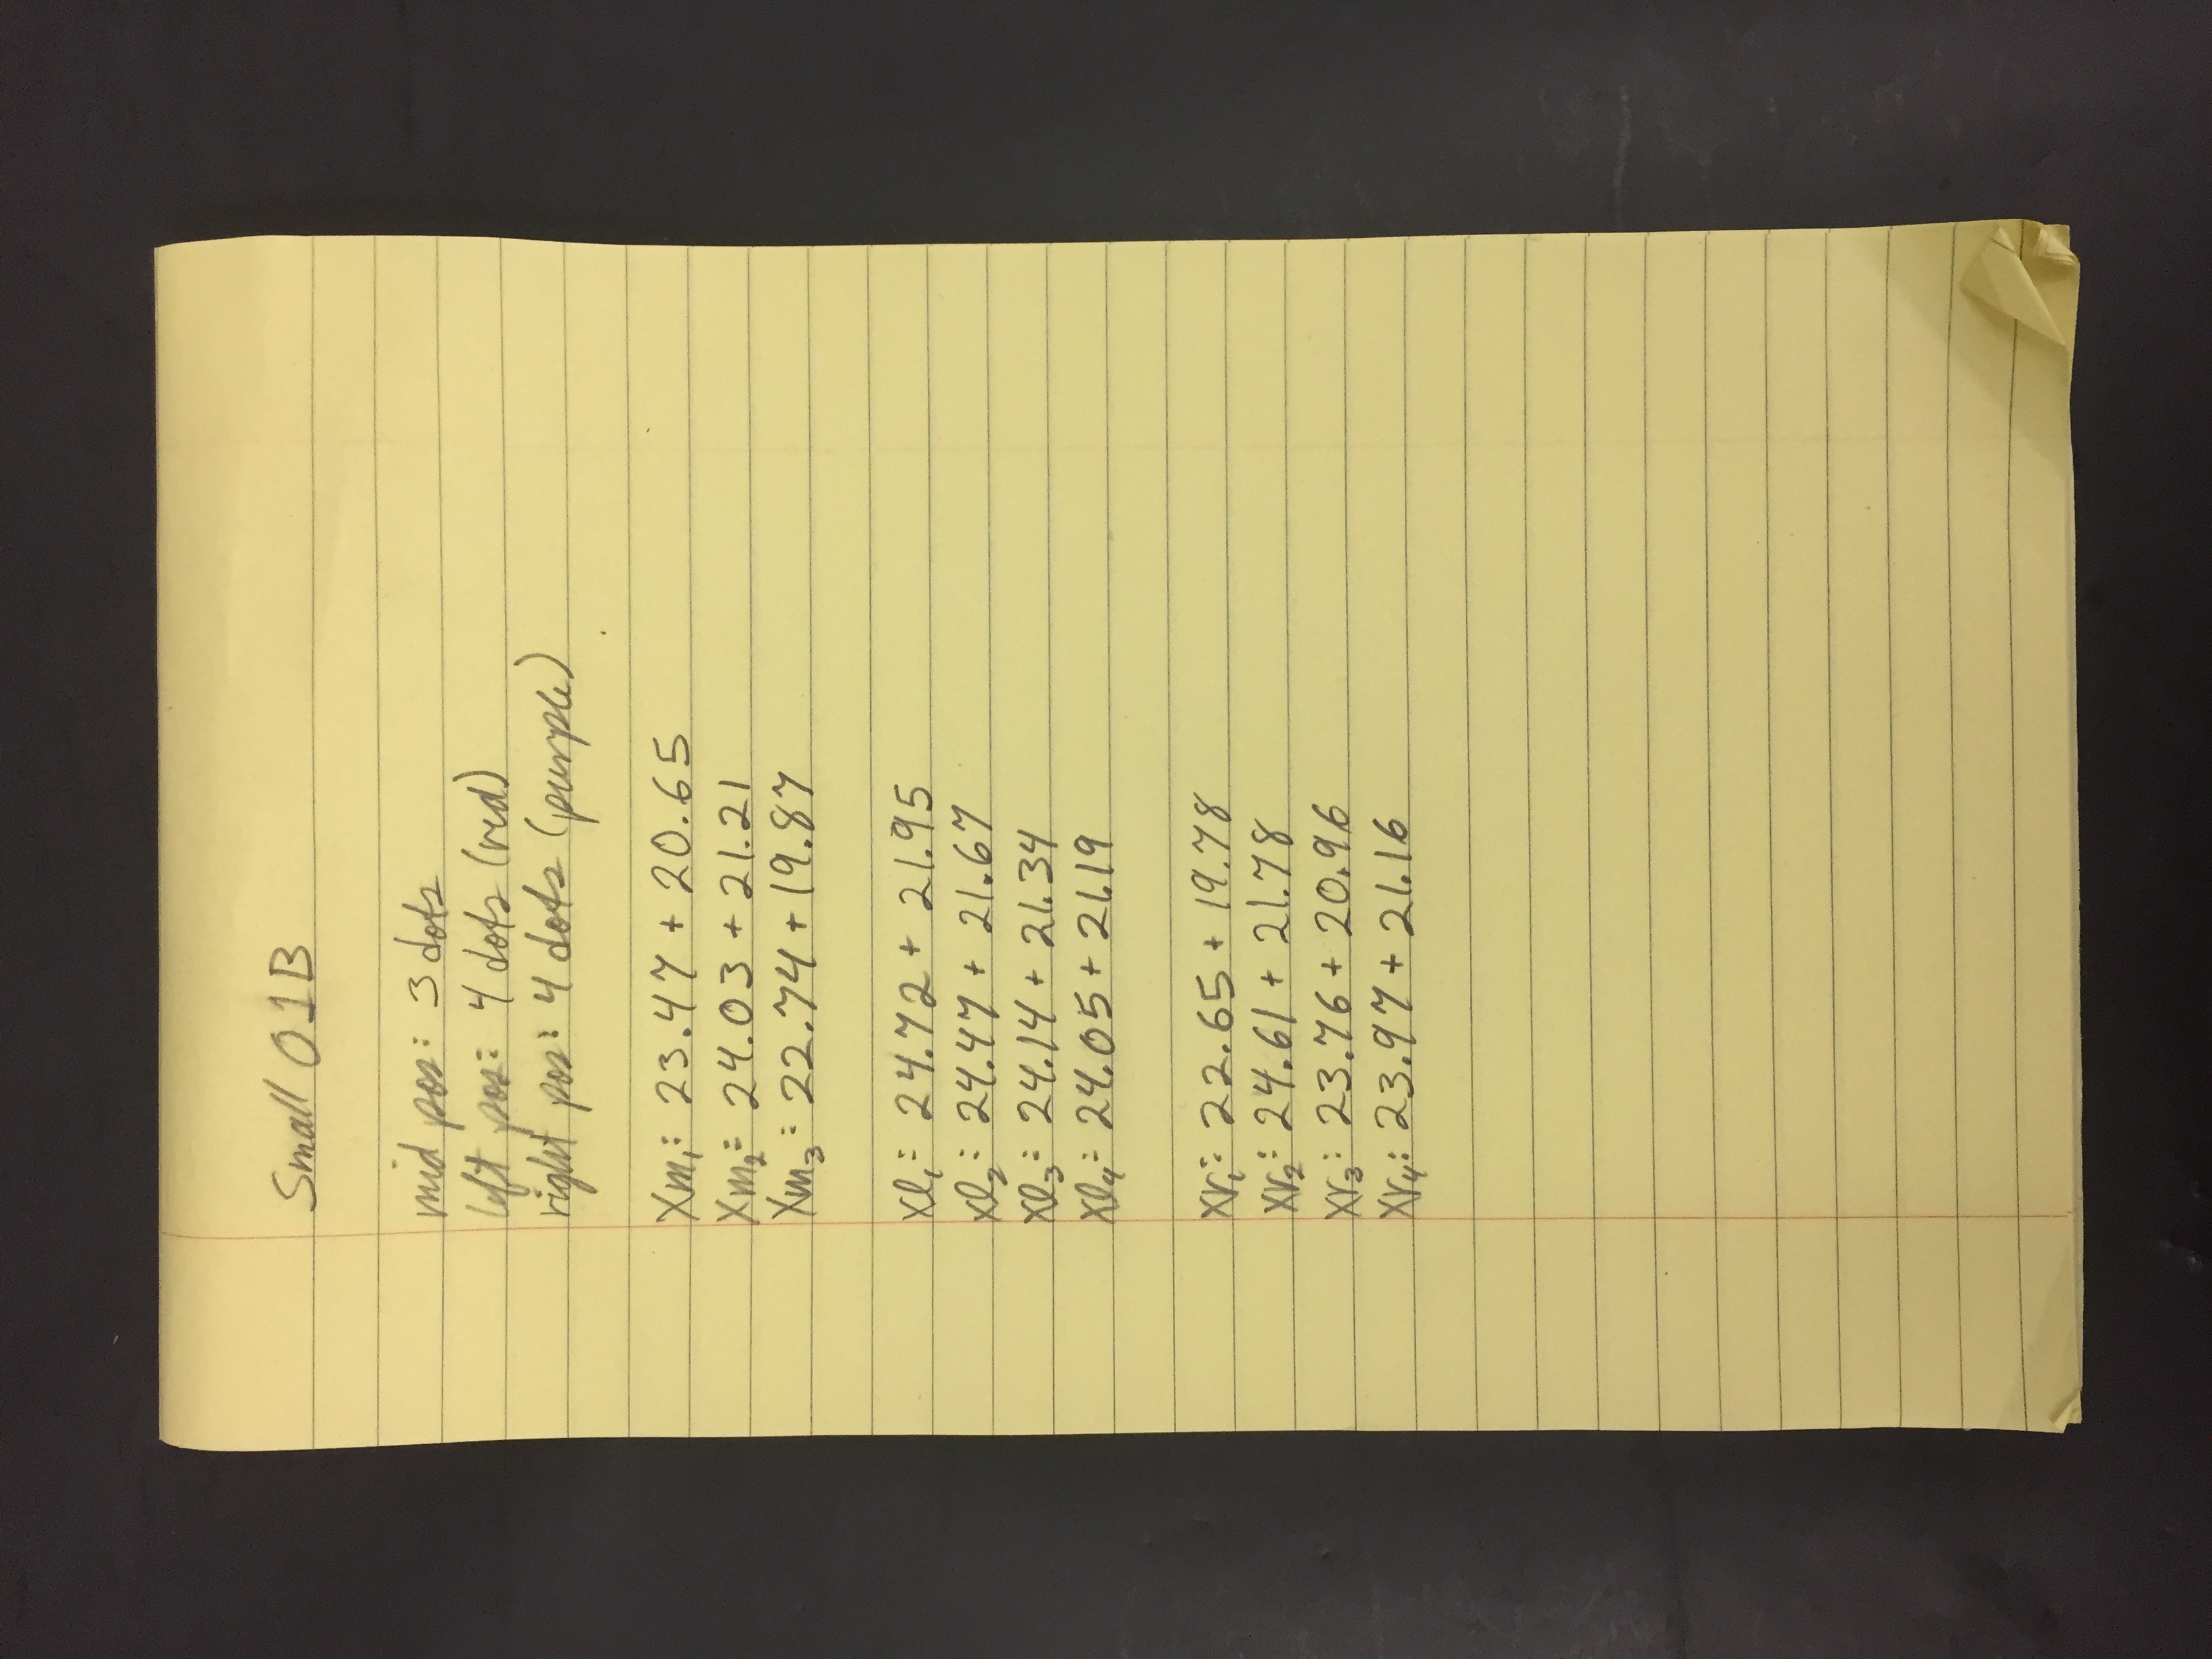 Small 01B
mid pos: 3 dots
left pos: 4 dots (red)
right pos: 4 dots (purple)
Xm₁: 23.47 + 20.65
Xm₂: 24.03 + 21.21
Xm₃: 22.74 + 19.87
xl₁: 24.72 + 21.95
xl₂: 24.47 + 21.67
xl₃: 24.14 + 21.34
xl₄: 24.05 + 21.19
xr₁: 22.65 + 19.78
xr₂: 24.61 + 21.78
xr₃: 23.76 + 20.96
xr₄: 23.97 + 21.16